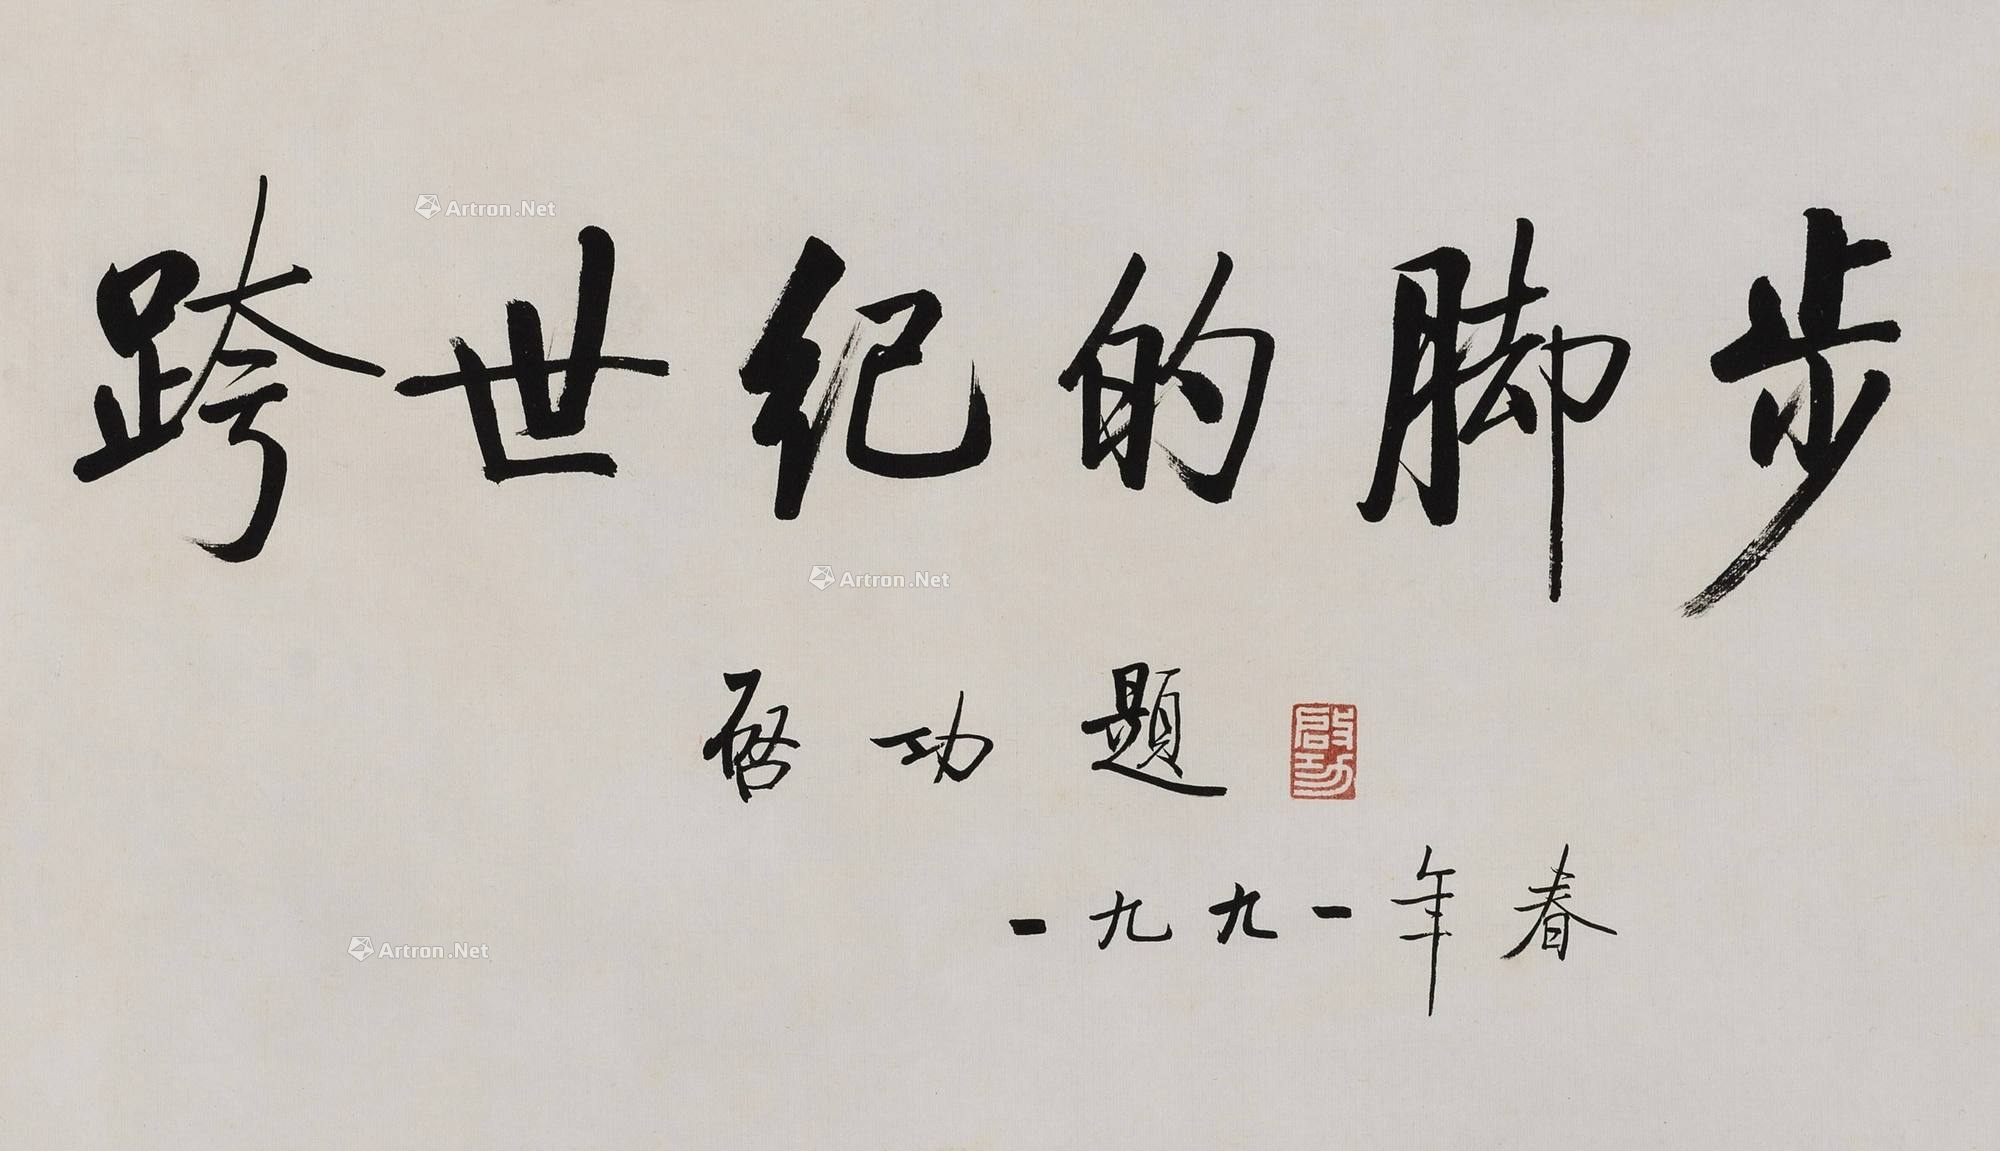 Artron.Net
跨世纪的脚步
Artron.Net
启功题
啟功
一九九一年春
Artron.Net